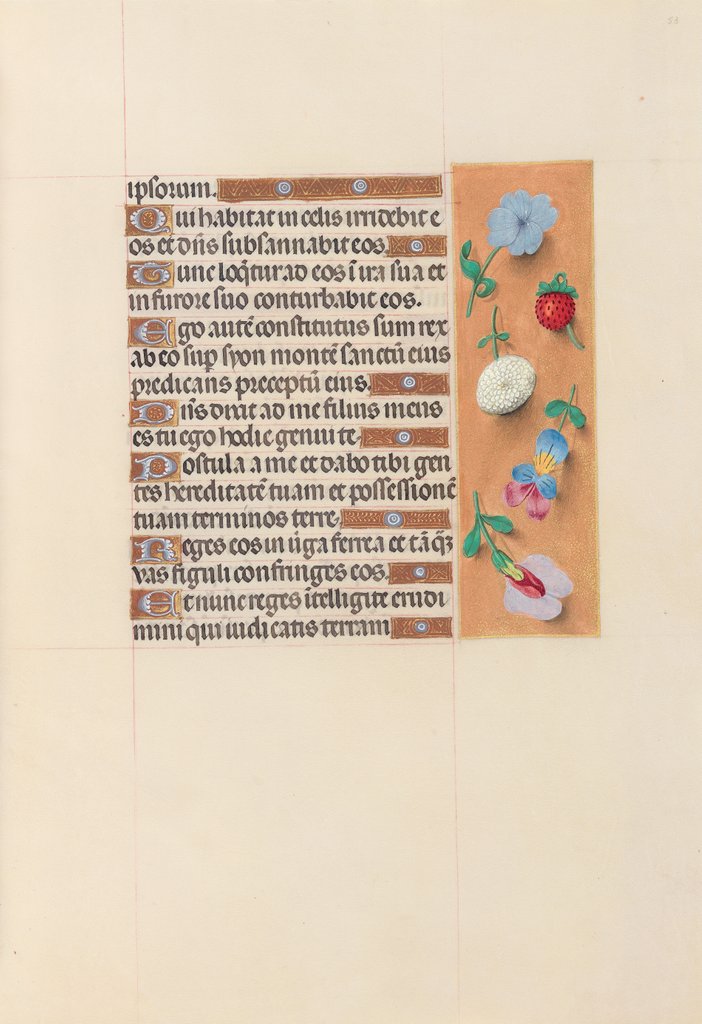 53
ipsorum.
Qui habitat in celis irridebit e
os et dn̄s subsannabit eos
Tunc loq̄tur ad eos ī ira sua et
in furore suo conturbabit eos.
Ego autē constitutus sum rex
ab eo sup̄ syon montē sanctū eius
predicans preceptū eius.
Dn̄s dixit ad me filius meus
es tu ego hodie genui te.
Postula a me et dabo tibi gen
tes hereditatē tuam et possessionē
tuam terminos terre.
Reges eos in ūga ferrea et tāqꝫ
vas figuli confringes eos.
Et nunc reges ītelligite erudi
mini qui iudicatis terram